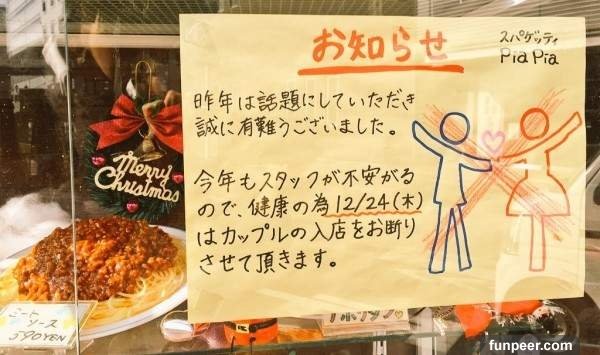 お知らせ
スパゲッティ
Pia Pia
昨年は話題にしていただき
誠に有難うございました。
今年もスタッフが不安がる
ので、健康の為12/24(木)
はカップルの入店をお断り
させて頂きます。
Merry
Christmas
ミート
ソース
590YEN
funpeer.com